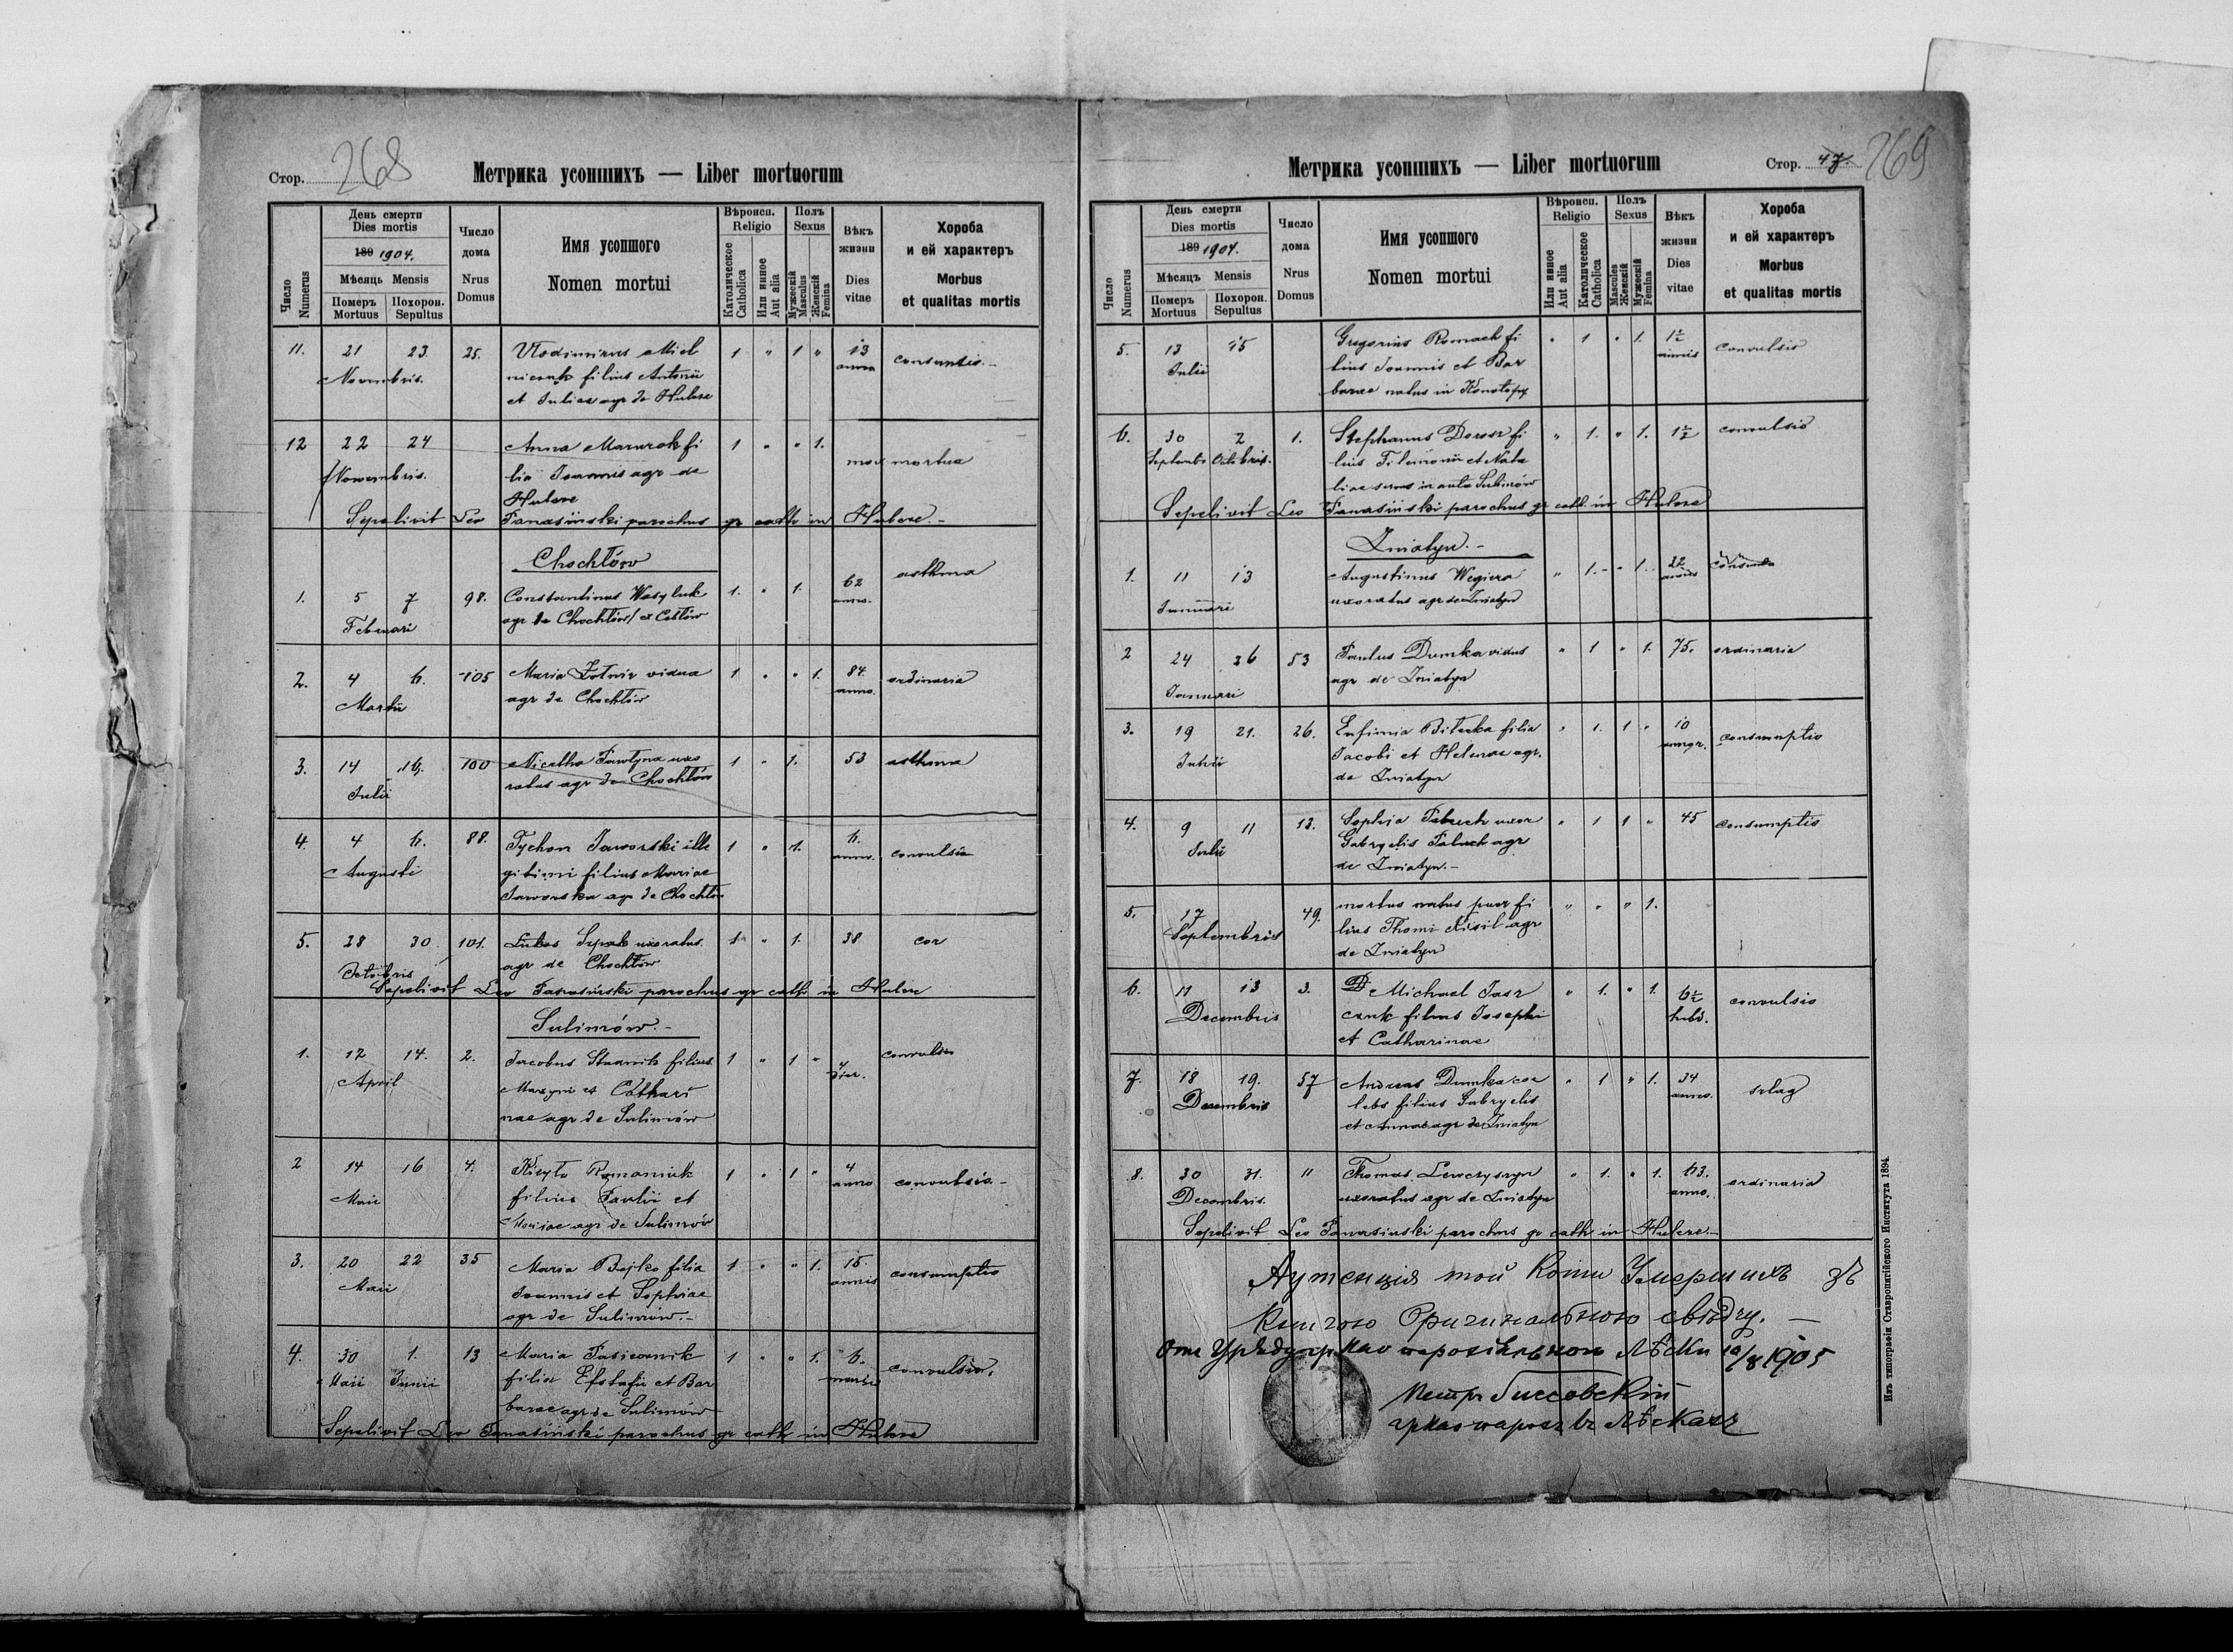 Стор. 268
Метрика усопшихъ — Liber mortuorum
Число Numerus
День смерти Dies mortis
189 1904.
Мѣсяць Mensis
Померъ Mortuus
Похорон. Sepultus
Число дома Nrus Domus
Имя усопшого Nomen mortui
Вѣроисп. Religio
Католическое Catholica
Или инное Aut alia
Полъ Sexus
Мужескій Masculus
Женскій Femina
Вѣкъ жизни Dies vitae
Хороба и ей характеръ Morbus et qualitas mortis
11. 21 23. 25. Wlodimirus 1 " 1 " 13
Novembris. filius Antonii
et Juliae agr de Hulcze
12 22 24 Anna Mazurok fi 1 " " 1.
Novembris. lia Joannis agr de mox mortua
Hulcze
Sepelivit Leo Tanasiński parochus gr cath in Hulcze.-
Chochłów
1. 5 7 98. Constantinus Wasyluk 1. " 1. 62 asthma
Februari agr de Chochłów anno.
2. 4 6. 105 Maria Żołnir vidua 1 " " 1. 84. ordinaria
Martii agr de Chochłów anno.
3. 14 16. 100 uxo 1 " 1. 53 asthma
Julii ratus agr de Chochłów
4. 4 6. 88. Tychon Jaworski ille 1 " 1. 6. convulsio
Augusti gitimi filius Mariae anno.
Jaworska agr de Chochłów
5. 28 30 101. Lukas uxoratus 1 " 1. 38 cor
Octobris agr de Chochłów
Sepelivit Leo Tanasiński parochus gr cath in Hulcze
Sulimów.-
1. 12 14. 2. Jacobus filius 1 " 1 " convulsio
April et Cathari dier.
nae agr de Sulimów
2 14 16 4. Kiryło Romaniuk 1 " 1 " 4 convulsio.-
Maii filius Pauli et anno
Mariae agr de Sulimów
3. 20 22 35 Maria Bojko filia 1 " " 1. 15. consumptio
Maii Joannis et Sophiae annis
agr de Sulimów.-
4. 30 1. 13 Maria 1 " " 1. 6. convulsio.
Maii Junii filia et Bar
barae agr de Sulimów
Sepelivit Leo Tanasiński parochus gr cath in Hulcze
Метрика усопшихъ — Liber mortuorum
Стор. 47. 269
Число Numerus
День смерти Dies mortis
189 1904.
Мѣсяцъ Mensis
Померъ Mortuus
Похорон. Sepultus
Число дома Nrus Domus
Имя усопшого Nomen mortui
Вѣроисп. Religio
Или инное Aut alia
Католическое Catholica
Полъ Sexus
Mascules Женскій
Мужескій Femina
Вѣкъ жизни Dies vitae
Хороба и ей характеръ Morbus et qualitas mortis
5. 13 15 Gregorius Romach fi " 1 " 1. 1½ convulsio
Julii lius Joannis et Bar annis
barae natus in Konotopy
6. 30 2 1. Stephanus Dorosz fi " 1. " 1. 1½ convulsio
Septembr Octobris. lius et Nata
liae Sulimów
Sepelivit Leo Tanasiński parochus gr cath. in Hulcze
Zniatyn.-
1. 11 13 Augustinus Węgiera " 1.- " 1. 22
Januari uxoratus agr de Zniatyn annis
2 24 26 53 Paulus Dumka vidus " 1 " 1. 75. ordinaria
Januari agr de Zniatyn
3. 19 21. 26. Eufimia filia " 1. 1 " 10 consumptio
Julii Jacobi et Helenae agr.
de Zniatyn
4. 9 11 13. Sophia uxor " 1 1 " 45 consumptio
Julii Gabryelis agr
de Zniatyn.-
5. 17 49. mortuo natus puer fi " " " 1.
Septembris lius Thomi Kisil agr
de Zniatyn
6. 11 13 3. Michael Jasz " 1. " 1. 6½ convulsio
Decembris czuk filius Josephi hebd.
et Catharinae
7. 18 19. 57 Andreas Dumka coe " 1 " 1. 34 szlag
Decembris lebs filius Gabryelis anno.
et Annae agr de Zniatyn
8. 30 31. 11 Thomas Lewczyszyn " 1. " 1. 63. ordinaria
Decembris. uxoratus agr de Zniatyn anno.
Sepelivit Leo Tanasiński parochus gr cath in Hulcze.-
той Копіи Умершихъ зъ
Книгою Оригинальною свѣдчу. —
Отъ Уряду 10/8 1905
Петръ
Изъ типографіи Ставропигійского Института 1894.